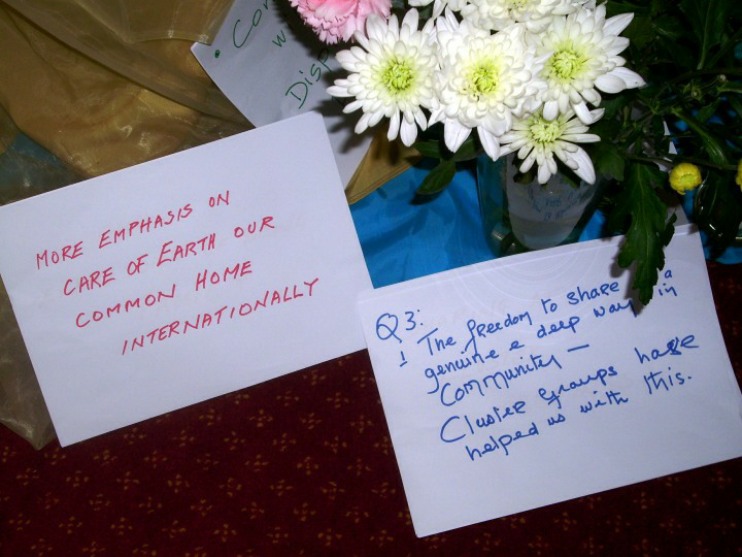 • Co
w
Disp
MORE EMPHASIS ON
CARE OF EARTH OUR
COMMON HOME
INTERNATIONALLY
Q3:
1 The freedom to share a
genuine e deep way in
Community –
Cluster groups have
helped us with this.